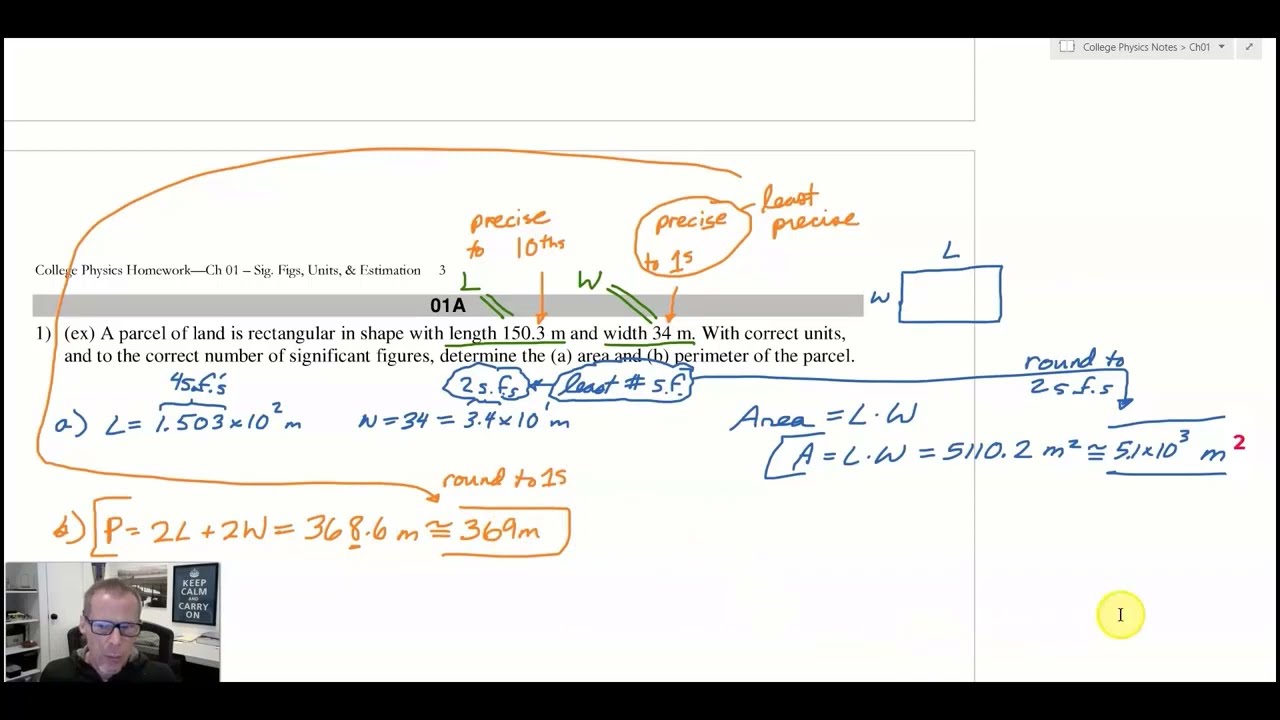 College Physics Notes > Ch01
least
precise
precise
precise
to 10ths
to 1s
L
College Physics Homework—Ch 01 – Sig. Figs, Units, & Estimation 3
L W
W
01A
1) (ex) A parcel of land is rectangular in shape with length 150.3 m and width 34 m. With correct units,
and to the correct number of significant figures, determine the (a) area and (b) perimeter of the parcel.
round to
2 s.f.s
4 s.f.'s
2 s.f.s least # s.f.
a) L = 1.503 × 10² m W = 34 = 3.4 × 10¹ m
Area = L · W
A = L · W = 5110.2 m² ≅ 5.1 × 10³ m²
round to 1s
b) P = 2L + 2W = 368.6 m ≅ 369 m
KEEP
CALM
AND
CARRY
ON